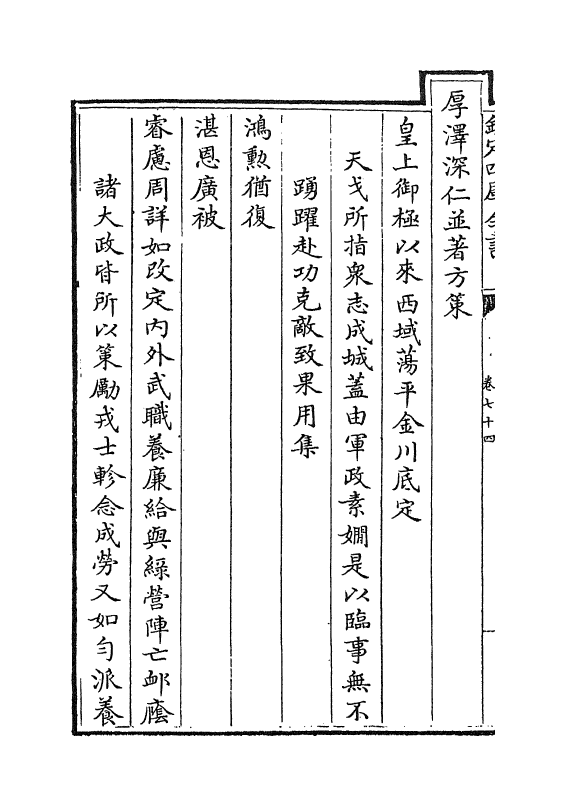 欽定四庫全書
卷七十四
厚澤深仁並著方策
皇上御極以來西域蕩平金川底定
天戈所指衆志成城蓋由軍政素嫺是以臨事無不
踴躍赴功克敵致果用集
鴻勲猶復
湛恩廣被
睿慮周詳如改定内外武職養廉給與綠營陣亡䘏廕
諸大政皆所以策勵戎士軫念成勞又如勻派養